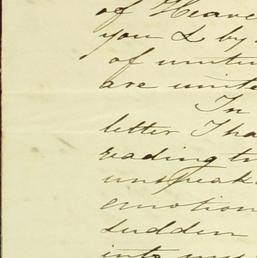 of Heave
you & by
of unitu
are unite
In
letter I ha
reading tr
unspeak
emotion
sudden
into my